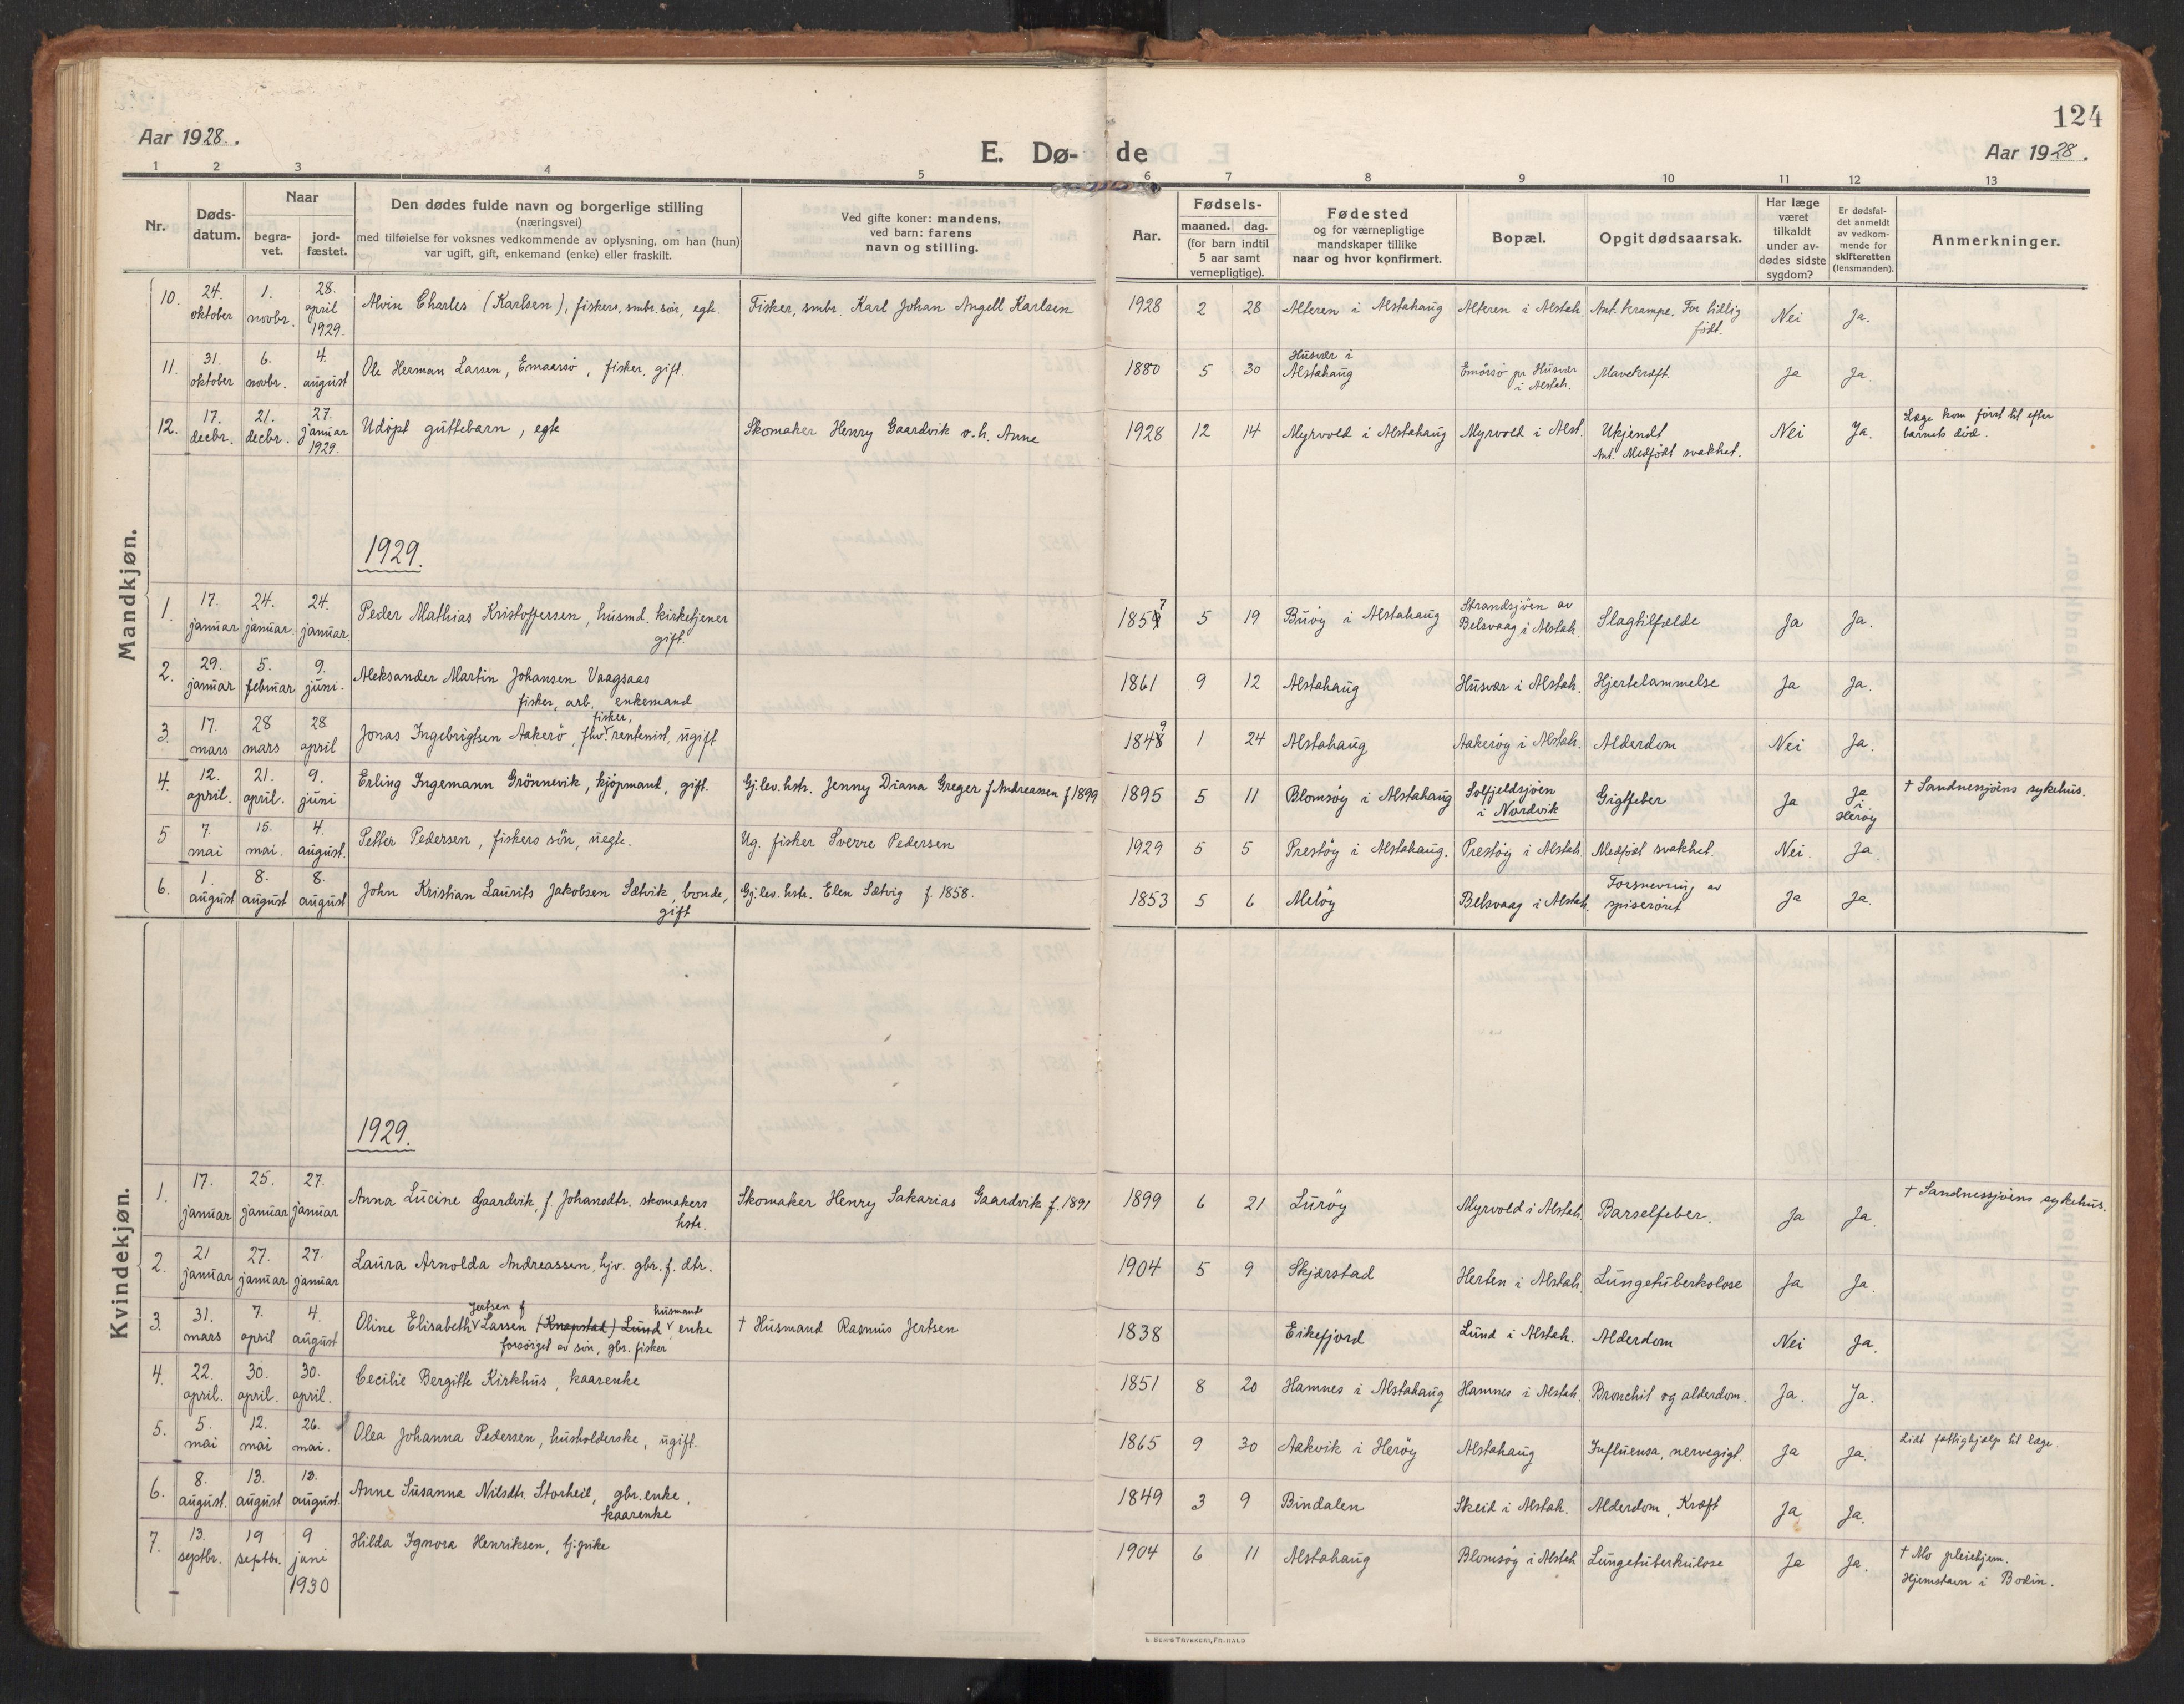 124
Aar 1928.
E. Dø- de
Aar 1928.
1 2 3 4 5 6 7 8 9 10 11 12 13
Nr.
Døds-
datum.
Naar
begra-
vet.
jord-
fæstet.
Den dødes fulde navn og borgerlige stilling
(næringsvei)
med tilføielse for voksnes vedkommende av oplysning, om han (hun)
var ugift, gift, enkemand (enke) eller fraskilt.
Ved gifte koner: mandens,
ved barn: farens
navn og stilling.
Aar.
Fødsels-
maaned. dag.
(for barn indtil
5 aar samt
vernepligtige).
Fødested
og for værnepligtige
mandskaper tillike
naar og hvor konfirmert.
Bopæl.
Opgit dødsaarsak.
Har læge
været
tilkaldt
under av-
dødes sidste
sygdom?
Er dødsfal-
det anmeldt
av vedkom-
mende for
skifteretten
(lensmanden).
Anmerkninger.
Mandkjøn.
10. 24. oktober 1. novbr. 28. april 1929. Alvin Charles (Karlsen), fiskers, smbr. søn, egte. Fisker, smbr. Karl Johan Angell Karlsen 1928 2 28 Alteren i Alstahaug Alteren i Alstah. Ant. krampe. For tidlig født. Nei Ja.
11. 31. oktober 6. novbr. 4. august Ole Herman Larsen, Emaarsø, fisker, gift. 1880 5 30 Husvær i Alstahaug Emårsø pr Husvær i Alstah. Mavekræft. Ja Ja.
12. 17. decbr. 21. decbr. 27. januar 1929. Udöpt guttebarn, egte Skomaker Henry Gaardvik o.h. Anne 1928 12 14 Myrvold i Alstahaug Myrvold i Alst. Ukjendt Ant. Medfödt svakhet. Nei Ja. Læge kom först til efter barnets död.
1929.
1. 17. januar 24. januar 24. januar. Peder Mathias Kristoffersen, husmd. kirketjener gift. 1857 5 19 Buöy i Alstahaug Strandsjöen av Belsvaag i Alstah. Slagtilfælde Ja Ja.
2. 29. januar 5. februar 9. juni. Aleksander Martin Johansen Vaagsaas fisker, arb. enkemand 1861 9 12 Alstahaug Husvær i Alstah. Hjertelammelse Ja Ja.
3. 17. mars 28 mars 28 april Jonas Ingebrigtsen Aakerö, fhv. fisker, rentenist, ugift 1849 1 24 Alstahaug Aakeröy i Alstah. Alderdom Nei Ja.
4. 12. april. 21. april. 9. juni Erling Ingemann Grönnevik, kjöpmant, gift. Gj.lev. hstr. Jenny Diana Greger f Andreassen f 1899 1895 5 11 Blomsöy i Alstahaug Solfjeldsjöen i Nordvik Gigtfeber Ja Ja i Heröy † Sandnessjöens sykehus.
5 7. mai 15. mai. 4. august. Petter Pedersen, fiskers sön, uegte. Ug. fisker Sverre Pedersen 1929 5 5 Prestöy i Alstahaug. Prestöy i Alstah. Medfödt svakhet. Nei. Ja.
6. 1. august 8. august 8. august John Kristian Laurits Jakobsen Sætvik, bonde, gift Gj.lev. hstr. Elen Sætvig f. 1858. 1853 5 6 Meløy Belsvaag i Alstah. Forsnevring av spiseröret Ja Ja.
Kvindekjøn.
1929.
1. 17. januar 25. januar 27. januar Anna Lucine Gaardvik, f. Johansdtr. skomakers hstr. Skomaker Henry Sakarias Gaardvik f. 1891 1899 6 21 Luröy Myrvold i Alstah. Barselfeber. Ja Ja. † Sandnessjöens sykehus.
2. 21 januar 27. januar 27. januar Laura Arnolda Andreassen, hjv. gbr. f. dtr. 1904 5 9 Skjærstad Herten i Alstah. Lungetuberkolose Ja Ja.
3. 31. mars 7. april 4. august Oline Elisabeth Jertsen f Larsen (Knapstad) Lund husmands enke forsörget av sön, gbr. fisker † Husmand Rasmus Jertsen 1838 Eikefjord Lund i Alstah. Alderdom Nei Ja.
4. 22. april. 30. april. 30. april. Cecilie Bergitte Kirkhus, kaarenke 1851 8 20 Hamnes i Alstahaug Hamnes i Alstah. Bronchit og alderdom. Ja. Ja.
5. 5. mai 12. mai 26. mai. Olea Johanna Pedersen, husholderske, ugift. 1865 9 30 Aakvik i Heröy Alstahaug Influensa, nervegigt. Ja Ja. Lidt fattighjælp til læge.
6. 8. august. 13. august. 13. august. Anne Susanna Nilsdtr. Storheil, gbr. enke, kaarenke 1849 3 9 Bindalen Skeid i Alstah. Alderdom, Kræft Ja Ja.
7. 13. septbr. 19 septbr. 9 juni 1930 Hilda Ignora Henriksen, tj.pike 1904 6 11 Alstahaug Blomsöy i Alstah Lungetuberkulose Ja Ja. † Mo pleiehjem. Hjemstavn i Bodin.